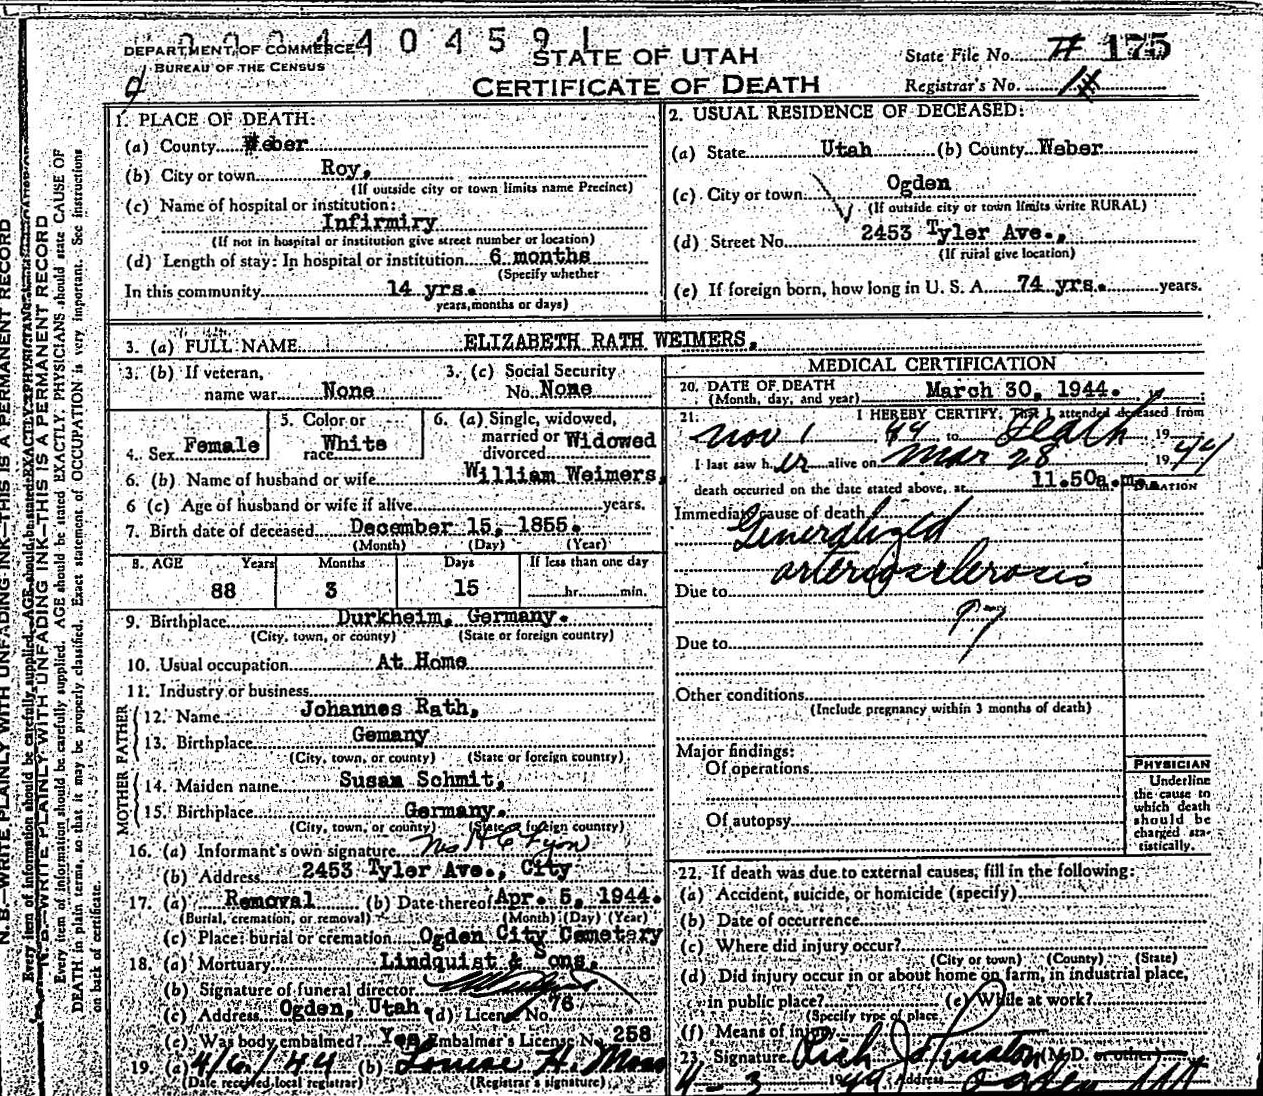 0004404591
DEPARTMENT OF COMMERCE
BUREAU OF THE CENSUS
STATE OF UTAH
CERTIFICATE OF DEATH
State File No. # 175
Registrar's No.
1. PLACE OF DEATH:
(a) County Weber
(b) City or town Roy,
(If outside city or town limits name Precinct)
(c) Name of hospital or institution:
Infirmiry
(If not in hospital or institution give street number or location)
(d) Length of stay: In hospital or institution 6 months
(Specify whether
In this community 14 yrs.
years, months or days)
2. USUAL RESIDENCE OF DECEASED:
(a) State Utah (b) County Weber
(c) City or town Ogden
(If outside city or town limits write RURAL)
(d) Street No. 2453 Tyler Ave.,
(If rural give location)
(e) If foreign born, how long in U. S. A. 74 yrs. years.
3. (a) FULL NAME ELIZABETH RATH WEIMERS,
3. (b) If veteran, name war None
3. (c) Social Security No. None
4. Sex Female
5. Color or race White
6. (a) Single, widowed, married or divorced Widowed
6. (b) Name of husband or wife William Weimers,
6 (c) Age of husband or wife if alive years.
7. Birth date of deceased December 15, 1855.
(Month) (Day) (Year)
8. AGE Years Months Days If less than one day
88 3 15 hr. min.
9. Birthplace Durkheim, Germany.
(City, town, or county) (State or foreign country)
10. Usual occupation At Home
11. Industry or business
FATHER
12. Name Johannes Rath,
13. Birthplace Gemany
(City, town, or county) (State or foreign country)
MOTHER
14. Maiden name Susan Schmit,
15. Birthplace Germany.
(City, town, or county) (State or foreign country)
16. (a) Informant's own signature Mrs H C Fyon
(b) Address 2453 Tyler Ave., City
17. (a) Removal (b) Date thereof Apr. 5, 1944.
(Burial, cremation, or removal) (Month) (Day) (Year)
(c) Place: burial or cremation Ogden City Cemetary
18. (a) Mortuary Lindquist & Sons.
(b) Signature of funeral director
(c) Address Ogden, Utah (d) License No. 76
(e) Was body embalmed? Yes Embalmer's License No. 258
19. (a) 4/6/44 (b) Louise H. Moss
(Date received local registrar) (Registrar's signature)
MEDICAL CERTIFICATION
20. DATE OF DEATH
(Month, day, and year) March 30, 1944. 19
21. I HEREBY CERTIFY, That I attended deceased from
Nov 1 44 to Death 19
I last saw her alive on Mar 28 1944
death occurred on the date stated above, at 11.50a.m. DURATION
Immediate cause of death
Generalized
arteriosclerosis
Due to
97
Due to
Other conditions
(Include pregnancy within 3 months of death)
Major findings:
Of operations
Of autopsy
PHYSICIAN
Underline
the cause to
which death
should be
charged sta-
tistically.
22. If death was due to external causes, fill in the following:
(a) Accident, suicide, or homicide (specify)
(b) Date of occurrence
(c) Where did injury occur?
(City or town) (County) (State)
(d) Did injury occur in or about home on farm, in industrial place,
in public place? (e) While at work?
(Specify type of place
(f) Means of injury
23. Signature Rich Johnston (M.D. or other)
4-3 1944 Address Ogden Ut
N. B.—WRITE PLAINLY WITH UNFADING INK—THIS IS A PERMANENT RECORD
Every item of information should be carefully supplied. AGE should be stated EXACTLY. PHYSICIANS should state CAUSE OF
DEATH in plain terms, so that it may be properly classified. Exact statement of OCCUPATION is very important. See instructions
on back of certificate.